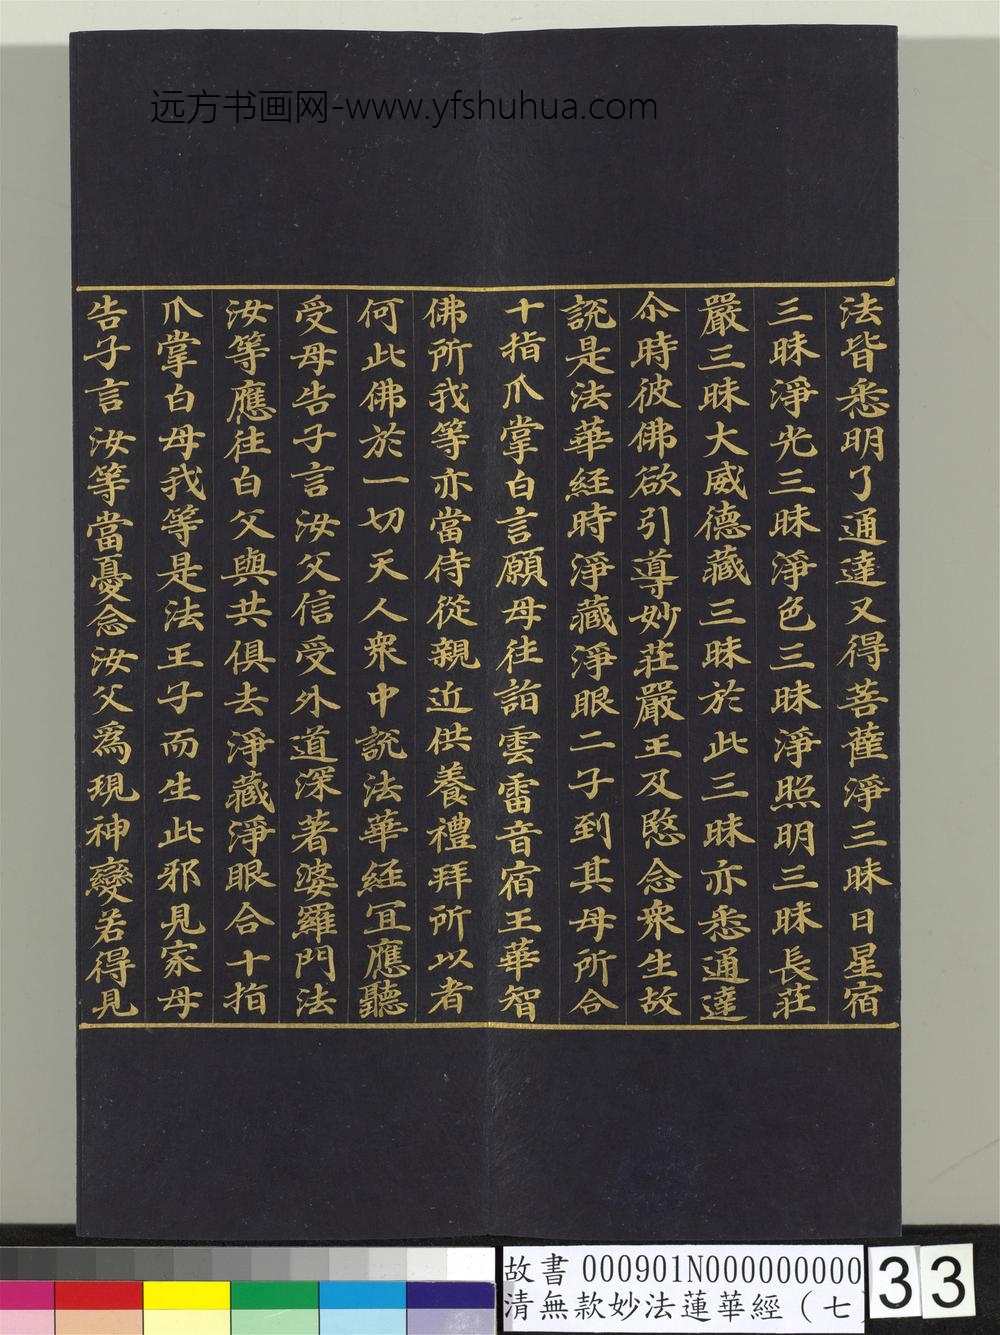 远方书画网-www.yfshuhua.com
法皆悉明了通達又得菩薩淨三昧日星宿
三昧淨光三昧淨色三昧淨照明三昧長莊
嚴三昧大威德藏三昧於此三昧亦悉通達
尒時彼佛欲引導妙莊嚴王及愍念衆生故
說是法華經時淨藏淨眼二子到其母所合
十指爪掌白言願母往詣雲雷音宿王華智
佛所我等亦當侍從親近供養禮拜所以者
何此佛於一切天人衆中說法華經宜應聽
受母告子言汝父信受外道深著婆羅門法
汝等應往白父與共俱去淨藏淨眼合十指
爪掌白母我等是法王子而生此邪見家母
告子言汝等當憂念汝父爲現神變若得見
故書 000901N000000000
清無款妙法蓮華經（七）
33